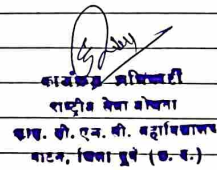 कार्यक्रम अधिकारी
राष्ट्रीय सेवा योजना
आय. सी. एल. सी. महाविद्यालय
पाटन, जिला दुर्ग (छ. ग.)